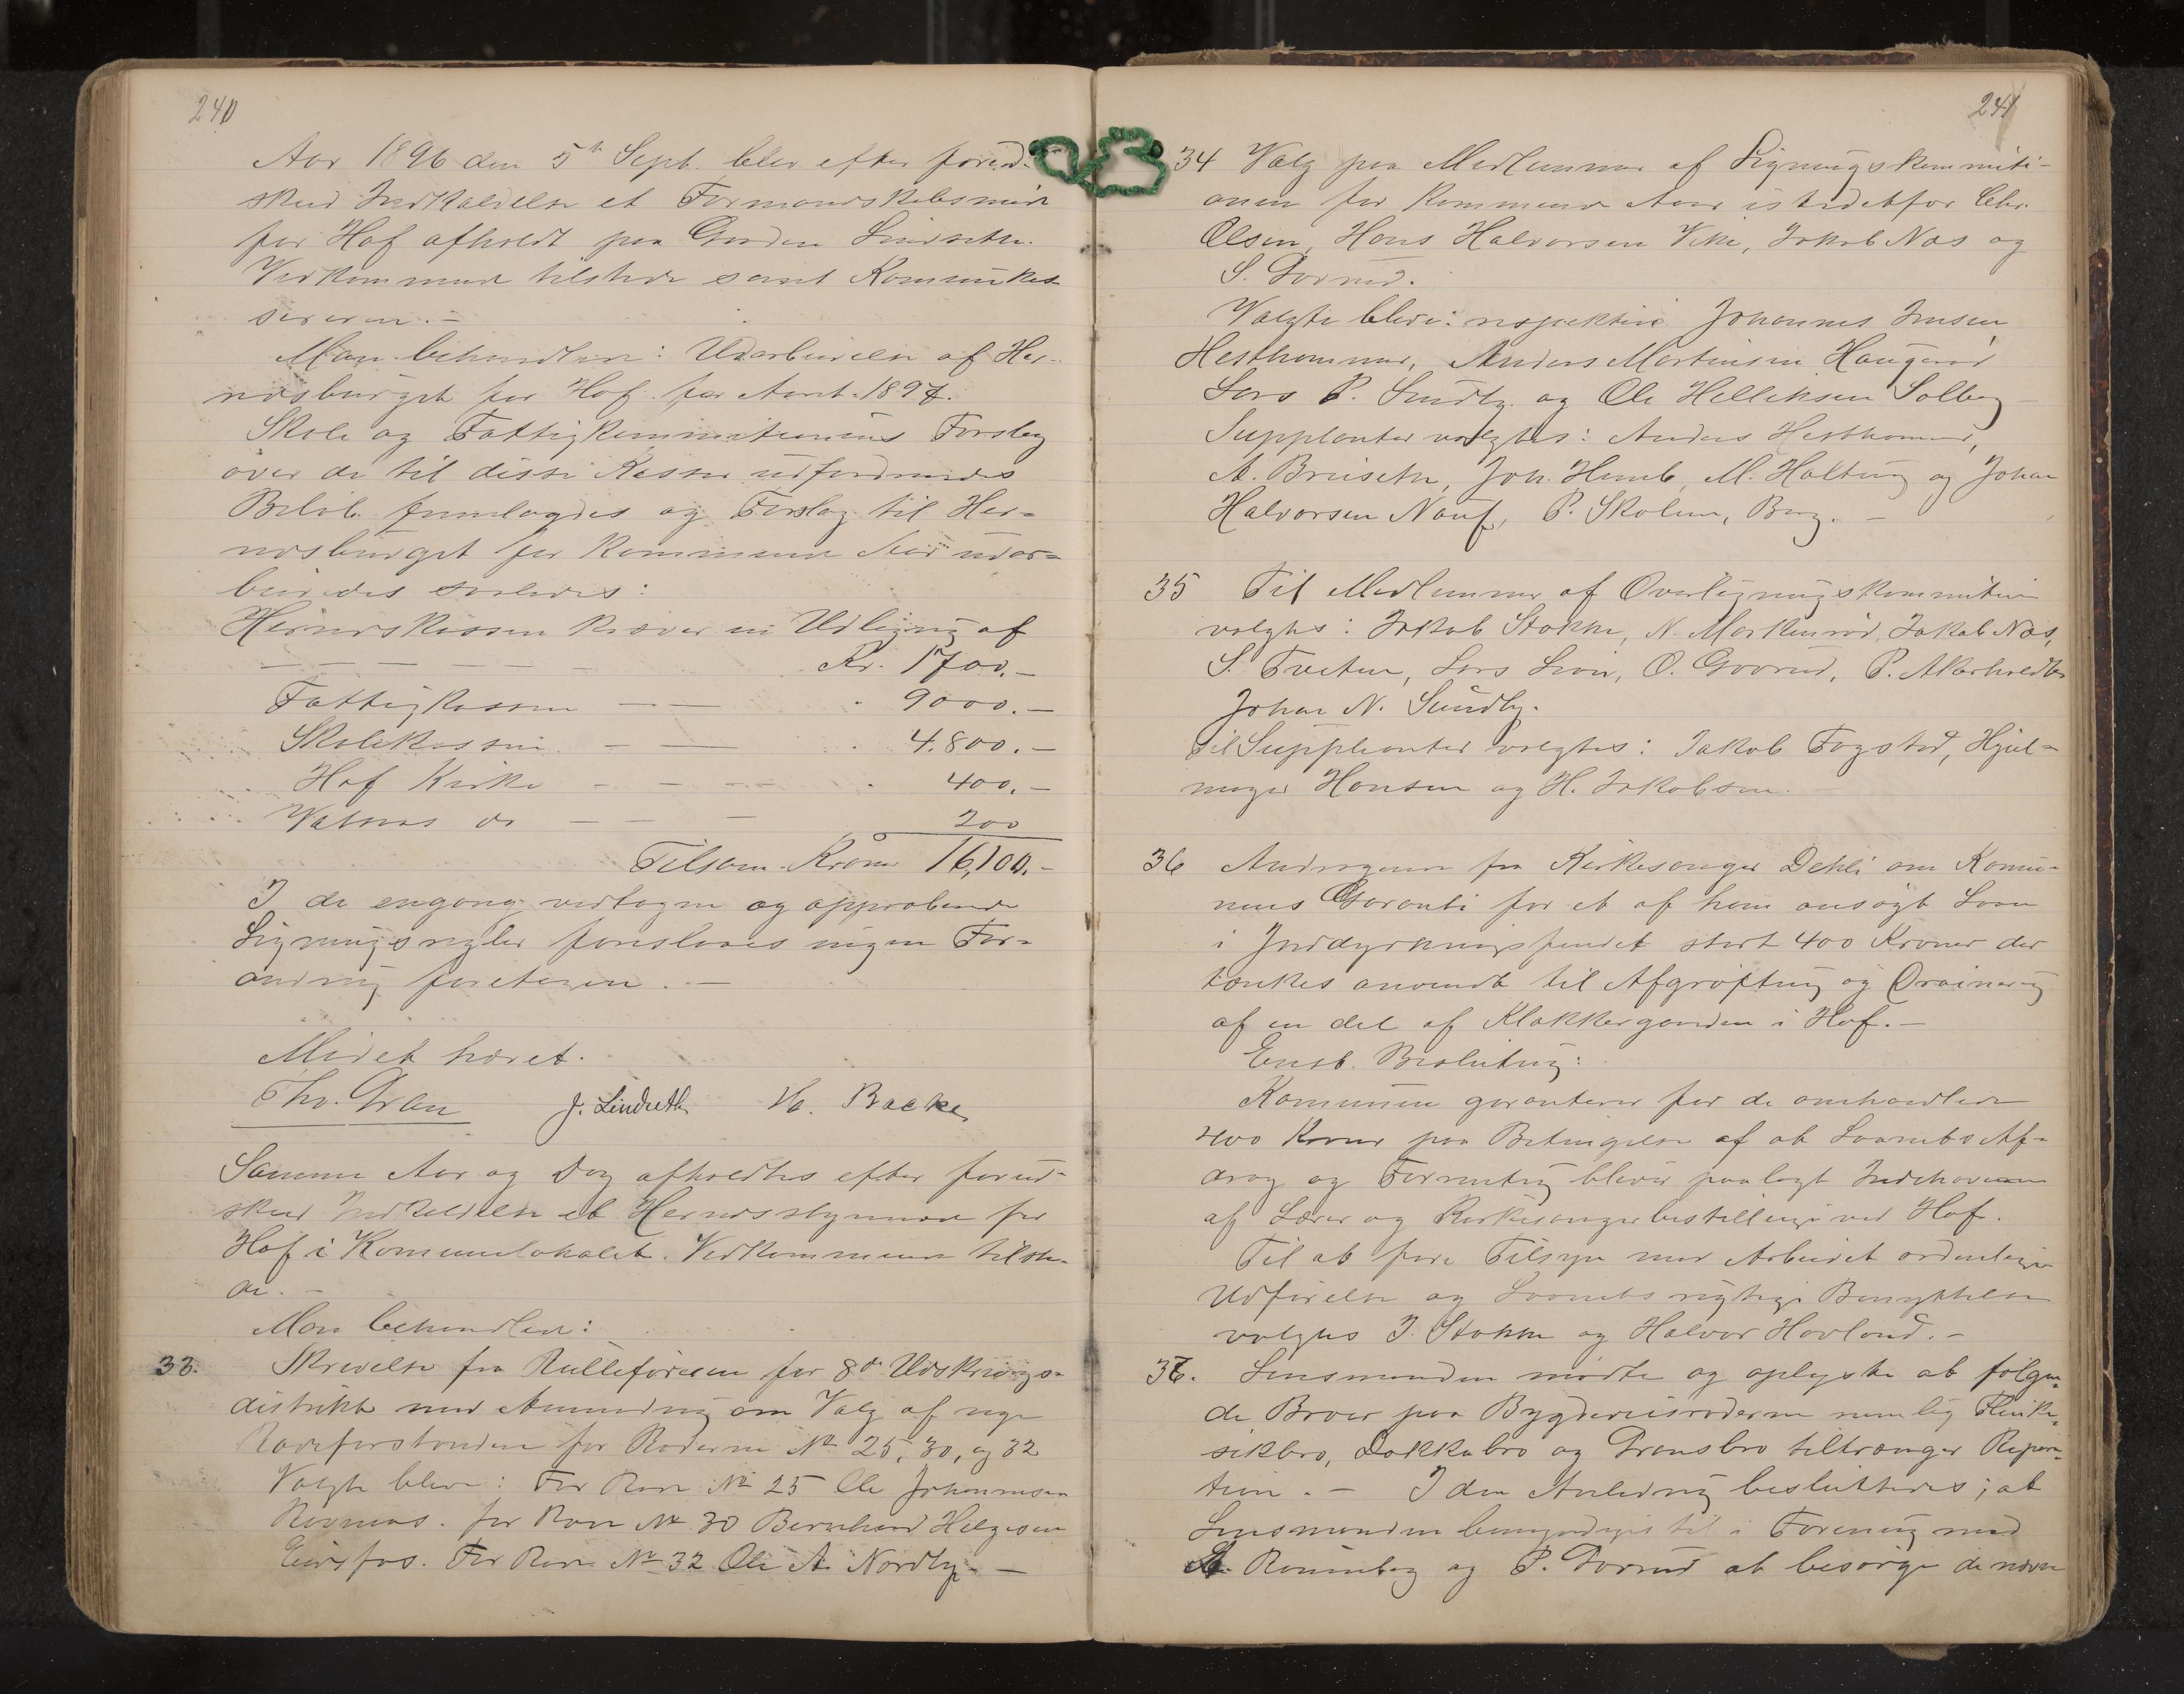 240
Aar 1896 den 5te Sept. blev efter forud-
skeed Indkaldelse et Formandskabsmøde
for Hof afholdt paa Gaarden Lindseth.
Vedkommende tilstede samt Kommunekas-
sereren.-
Man behandlede: Udarbeidelse af Her-
redsbudget for Hof for Aaret 1897.
Skole og Fattigkommisionens Forslag
over de til disse Kasser udfordrendes
Beløb fremlagdes og Forslag til Her-
redsbudget for kommende Aar udar-
beidedes saaledes:
Herredskassen kræver en Udligning af
— — — — — — Kr. 1700.-
Fattigkassen — — " 9000.-
Skolekassen — — " 4.800.-
Hof Kirke - - - - " 400.-
Vatnaas do — — — 200
Tilsam. Kroner 16,100.-
I de engang vedtagne og approberede
Ligningsregler foreslaaes ingen For-
andring foretagen.-
Mødet hævet.
Thv. Gran J. Lindseth H. Backe
Samme Aar og Dag afholdtes efter forud-
skeed Indkaldelse et Herredsstyremøde for
Hof i Kommunelokalet. Vedkommende tilste-
de.-
Man behandlede:
33. Skrivelse fra Rulleføreren for 8de Udskrivnings-
distrikt med Anmodning om Valg af nye
Rodeforstandere for Roderne No 25, 30, og 32
Valgte bleve: For Rode No 25 Ole Johannesen
Revnaas. for Rode No 30 Bernhard Helgesen
Eidsfos. For Rode No 32 Ole A. Nordby.-
241
34 Valg paa Medlemmer af Ligningskommisi-
onen for kommende Aar istedetfor Chr.
Olsen, Hans Halvorsen Vike, Jakob Næs og
S. Govrud.
Valgte bleve: respektive Johannes Iversen
Hesthammer, Anders Martinsen Haugerød
Lars P. Sundby og Ole Helleksen Solberg
Supplanter valgtes: Anders Hesthammer,
A. Bruseth, Joh. Hemb, M. Holtung og Johan
Halvorsen Nauf, P. Skolem, Berg.-
35 Til Medlemmer af Overligningskommisionen
valgtes: Jakob Stokke, N. Markerød, Jakob Næs,
S. Tveten, Lars Lien, O. Govrud, P. Akerholdt
Johan N. Sundby.
Til Supplianter valgtes: Jakob Fogstad, Hjul-
mager Hansen og H. Jakobsen.
36 Andragende fra Kirkesanger Dehli om Komu-
nens Garanti for et af ham ansøgt Laan
i Jorddyrkningsfondet stort 400 Kroner der
tænkes anvendt til Afgrøftning og Drainering
af en del af Klokkergaarden i Hof.-
Enst. Beslutning:
Komunen garanterer for de omhandlede
400 Kroner paa Betingelse af at Laanets Af-
drag og Forrentning bliver paalagt Indehaveren
af Lærer og Kirkesangerbestillingen ved Hof.
Til at føre Tilsyn med Arbeidet ordentlige
Udførelse og Laanets rigtige Benyttelse
valgtes J. Stokke og Halvor Hovland.-
37. Lensmanden mødte og oplyste at følgen-
de Broer paa Bygdeveisroderne nemlig
sikbro, Dokkabro og Gransbro tiltrænger Repera-
tion.- I den Anledning besluttedes; at
Lensmanden bemyndiges til i Forening med
A. Rønneberg og P. Govrud at besørge de nævn